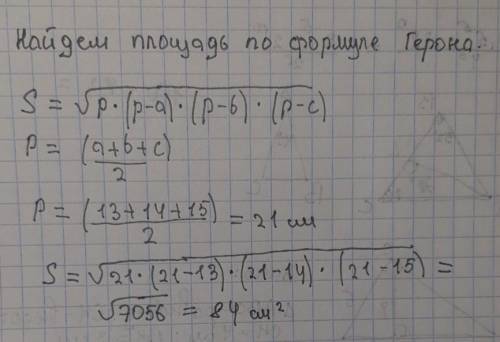 Найдем площадь по формуле Герона.
S = √p·(p-a)·(p-b)·(p-c)
P = (a+b+c)/2
P = (13+14+15)/2 = 21 см
S = √21·(21-13)·(21-14)·(21-15) =
√7056 = 84 см²